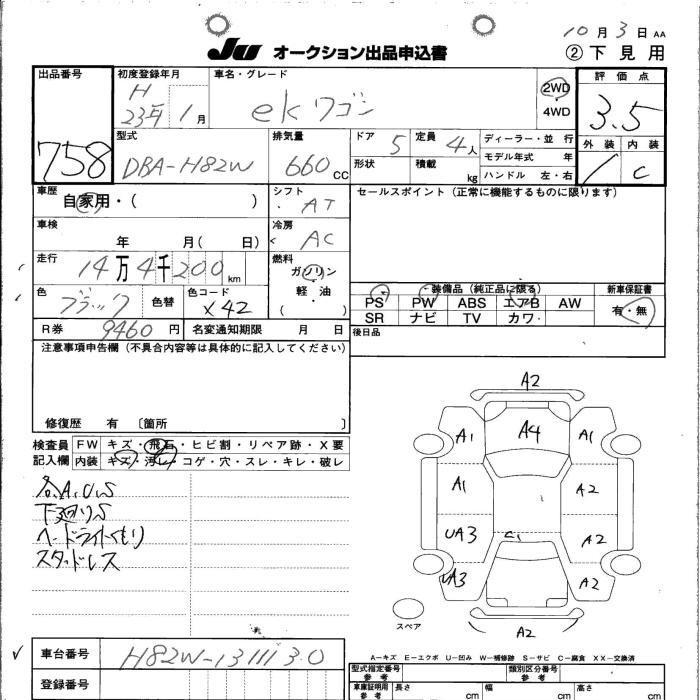 10月3日 AA
JU オークション出品申込書
② 下見用
出品番号
758
初度登録年月
H
23年 1月
車名・グレード
ekワゴン
2WD
4WD
評価点
3.5
外装 内装
C
型式
DBA-H82W
排気量
660 CC
ドア 5
定員 4人
形状
積載 kg
ディーラー・並行
モデル年式 年
ハンドル 左・右
車歴
自家用・( )
シフト
AT
セールスポイント(正常に機能するものに限ります)
車検
年 月( 日)
冷房
AC
走行
14万4千200 km
燃料
ガソリン
軽・油
色
ブラック
色替
色コード
X42
装備品(純正品に限る)
PS PW ABS エアB AW
SR ナビ TV カワ・
新車保証書
有・無
R券 9460円
名変通知期限 月 日
後日品
注意事項申告欄(不具合内容等は具体的に記入してください)
修復歴 有 〔箇所 〕
検査員
記入欄
FW キズ・飛石・ヒビ割・リペア跡・X要
内装 キズ・汚レ・コゲ・穴・スレ・キレ・破レ
各A.U.S
下廻りS
ヘッドライトくもり
スタッドレス
A2
A1 A4 A1
A1 A2
UA3 A2
UA3 A2
スペア
A2
A-キズ E-エクボ U-凹み W-補修跡 S-サビ C-腐食 XX-交換済
車台番号 H82W-1311130
登録番号
型式指定番号
参考
類別区分番号
参考
車庫証明用
参考
長さ cm
幅 cm
高さ cm